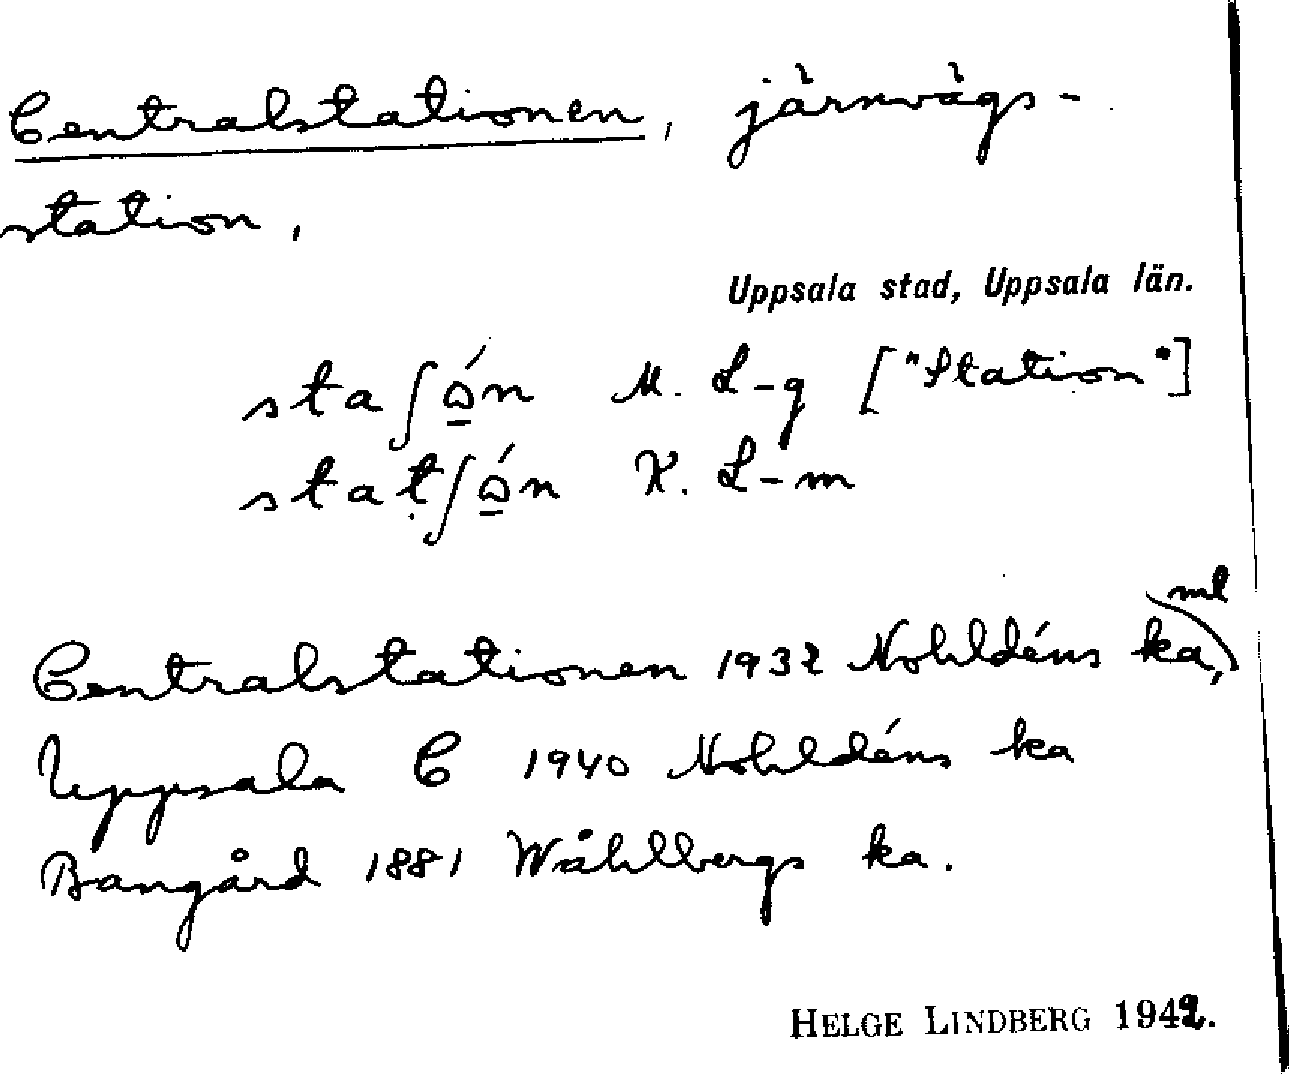 Centralstationen, järnvägs-
station,
Uppsala stad, Uppsala län.
staʃɷ́n M. L-g ["Station"]
statʃɷ́n K. L-m
ml
Centralstationen 1932 Nohldéns ka,
Uppsala C 1940 Nohldéns ka
Bangård 1881 Wåhlbergs ka.
HELGE LINDBERG 1942.